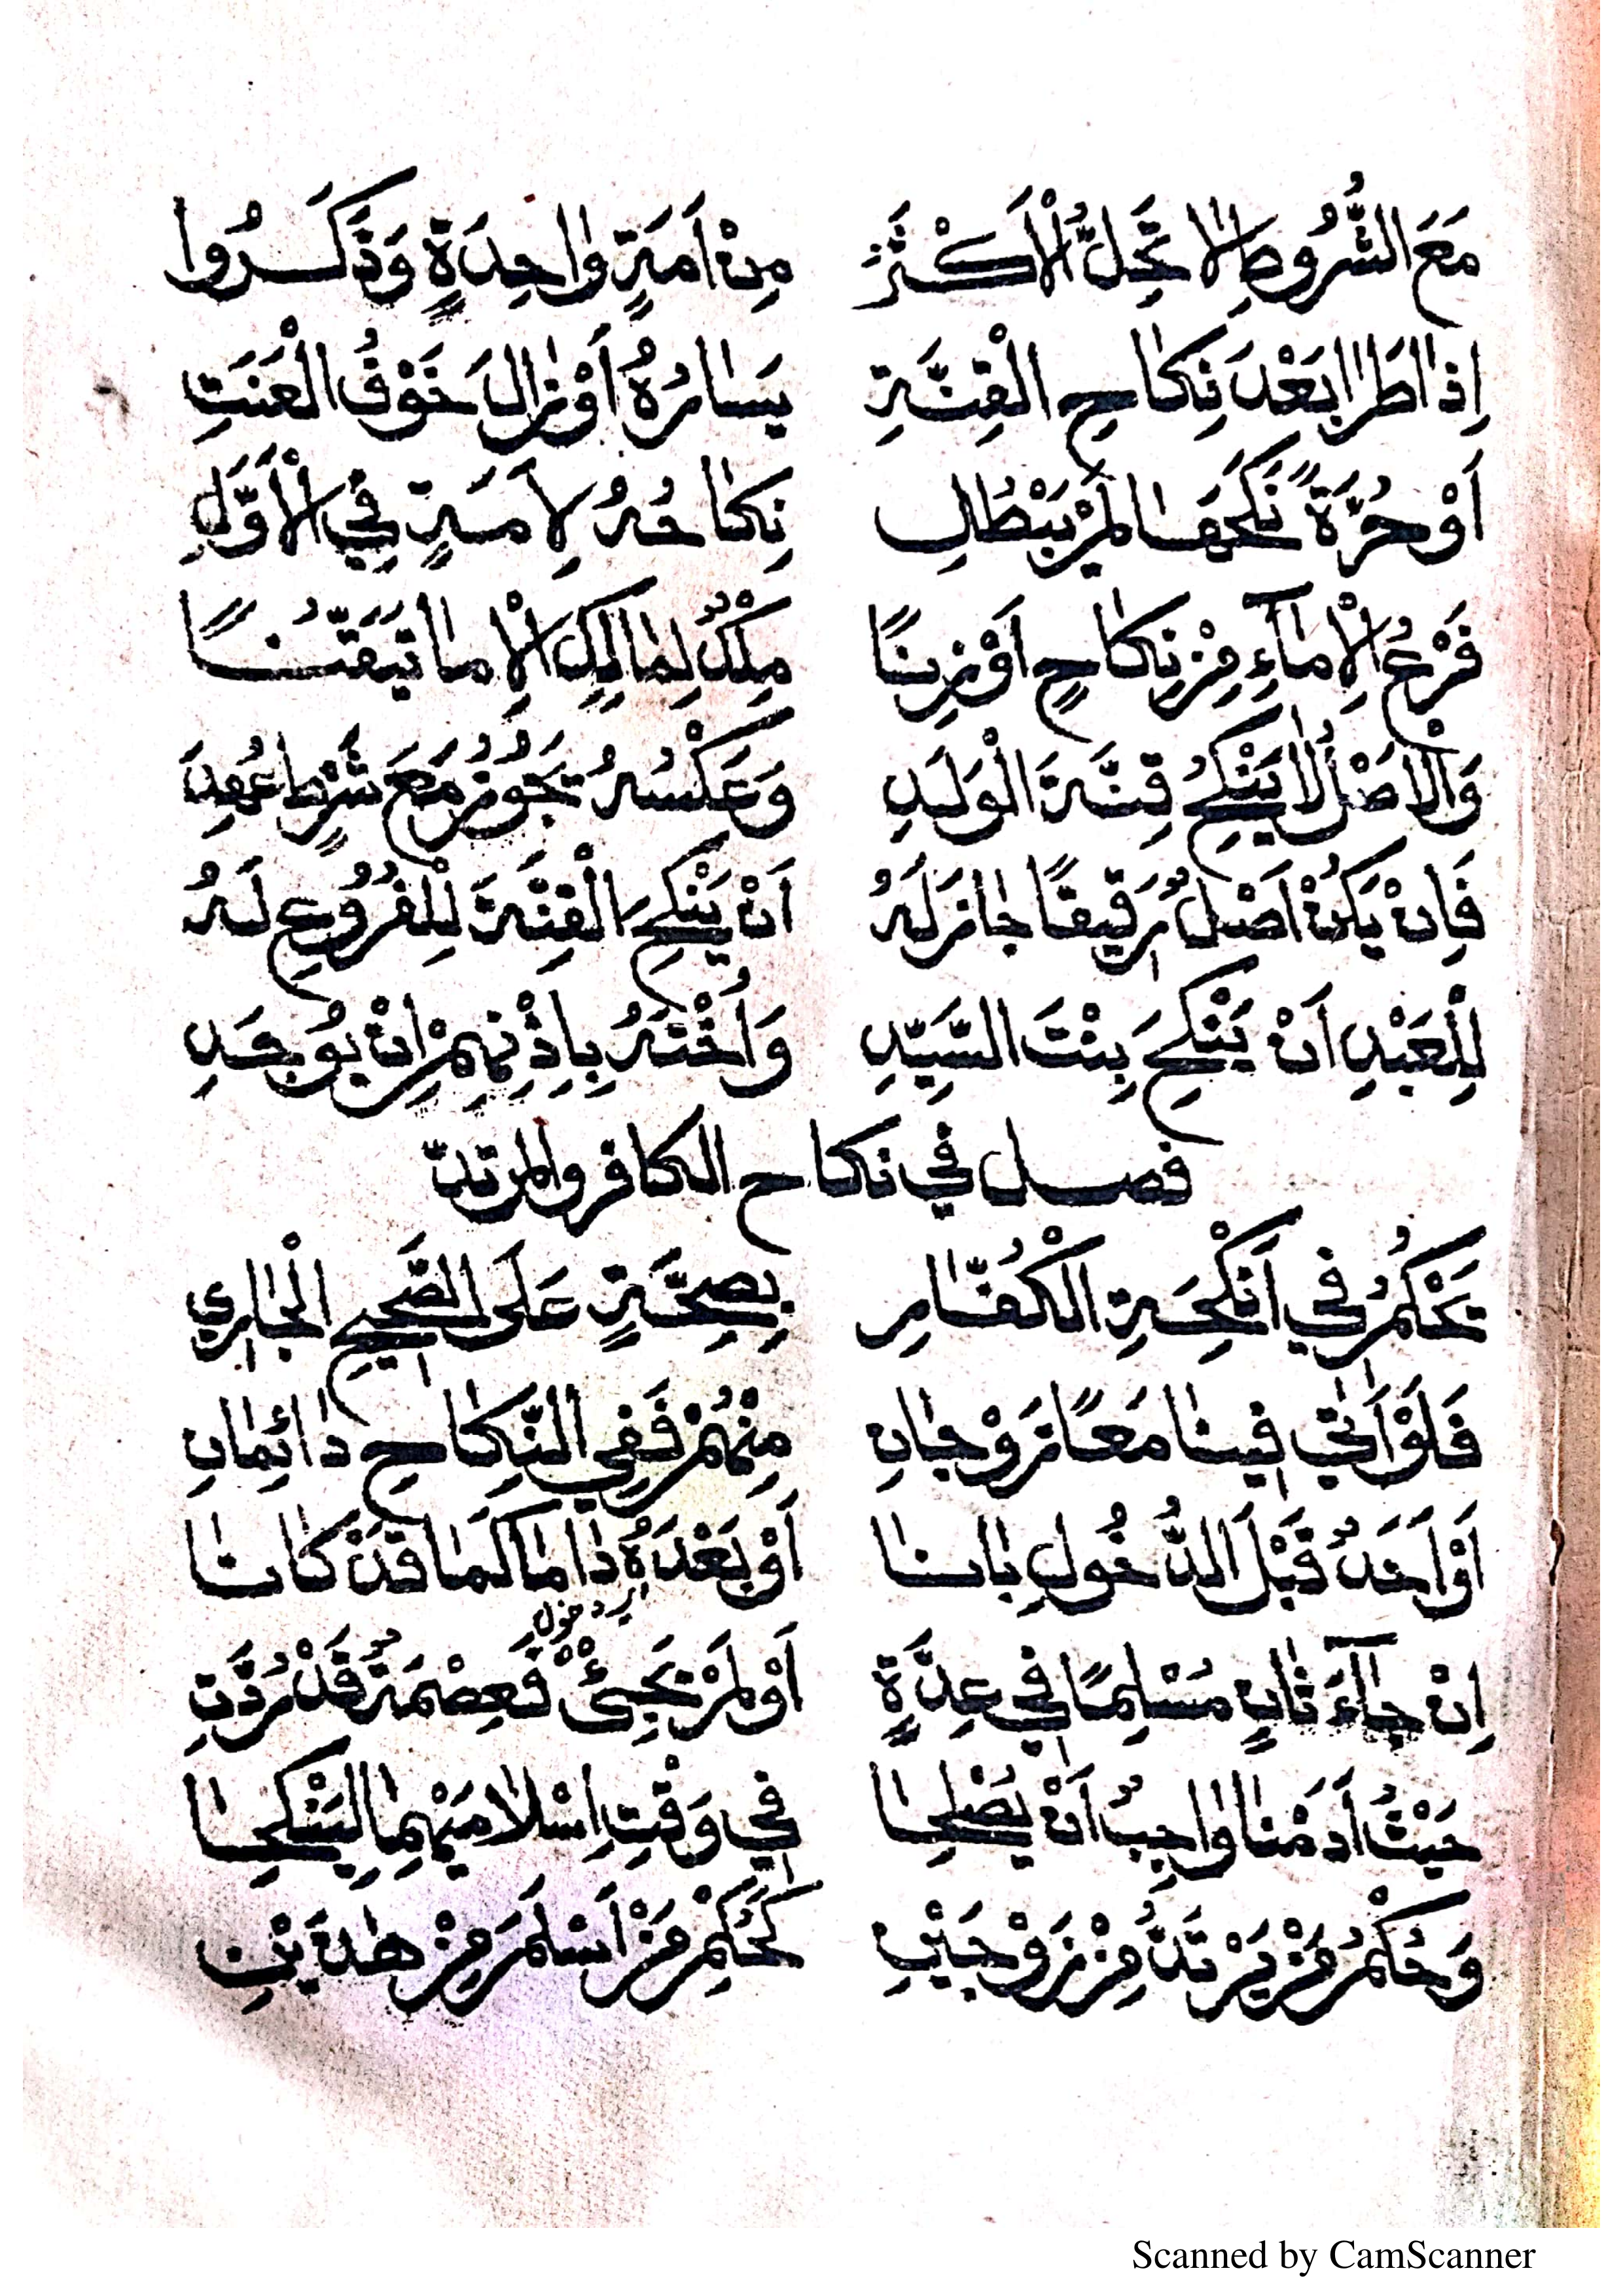 مَعَ الشُّرُوطِ لَا تَحِلُّ الْأَكْثَرُ مِنْ أَمَةٍ وَاحِدَةٍ وَذَكَرُوا
إِذَا طَرَا بَعْدَ نِكَاحِ الْقِنَّةِ يَسَارُهُ أَوْ زَالَ خَوْفُ الْعَنَتِ
أَوْ حُرَّةً نَكَحَهَا لَمْ يَبْطُلِ نِكَاحُهُ لِأَمَةٍ فِي الْأَوَّلِ
فَرْعُ الْإِمَاءِ مِنْ نِكَاحٍ أَوْ زِنًا مِلْكٌ لِمَالِكِ الْإِمَا تَيَقَّنًا
وَالْأَصْلُ لَا يَنْكِحُ قِنَّةَ الْوَلَدِ وَعَكْسُهُ تَجَوُّزٌ مَعَ شَرْطٍ عُهِدَ
فَإِنْ يَكُنْ أَصْلٌ رَقِيقًا جَازَ لَهُ أَنْ يَنْكِحَ الْقِنَّةَ لِلْفُرُوعِ لَهُ
لِلْعَبْدِ أَنْ يَنْكِحَ بِنْتَ السَّيِّدِ وَأُخْتَهُ بِإِذْنِهِمْ إِنْ يُوجَدِ
فصل في نكاح الكافر والمرتدّ
نَحْكُمُ فِي أَنْكِحَةِ الْكُفَّارِ بِصِحَّةٍ عَلَى الصَّحِيحِ الْجَارِي
فَلَوْ أَتَى فِينَا مَعًا زَوْجَانِ مِنْهُمْ فَفِي النِّكَاحِ دَائِمَانِ
أَوْ أَحَدٌ قَبْلَ الدُّخُولِ بَانَا أَوْ بَعْدَهُ دَامَا كَمَا قَدْ كَانَا
دخول
إِنْ جَاءَ ثَانٍ مُسْلِمًا فِي عِدَّةٍ أَوْ لَمْ يَجِئْ فَعِصْمَةٌ قَدْ رُدَّتِ
حَيْثُ أَدَمْنَا وَاجِبٌ أَنْ يَصْلُحَا فِي وَقْتِ إِسْلَامَيْهِمَا لِيَنْكِحَا
وَحُكْمُ مَنْ يَرْتَدُّ مِنْ زَوْجَيْنِ كَحُكْمِ مَنْ أَسْلَمَ مِنْ هٰذَيْنِ
Scanned by CamScanner